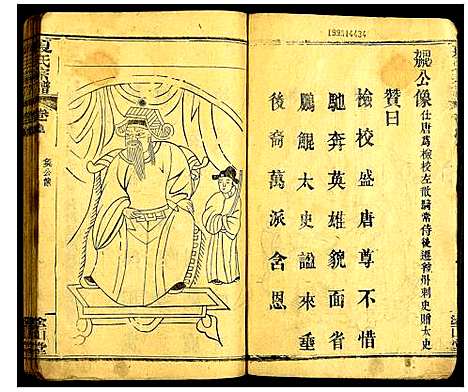 199514434
公像 仕唐爲檢校左散騎常侍後遷 州刺史贈太史
贊曰
檢校盛唐尊不惜
馳奔英雄貌面省
鵬鯤太史謚來垂
後裔萬派含恩
堂
夏氏宗譜
公像
堂